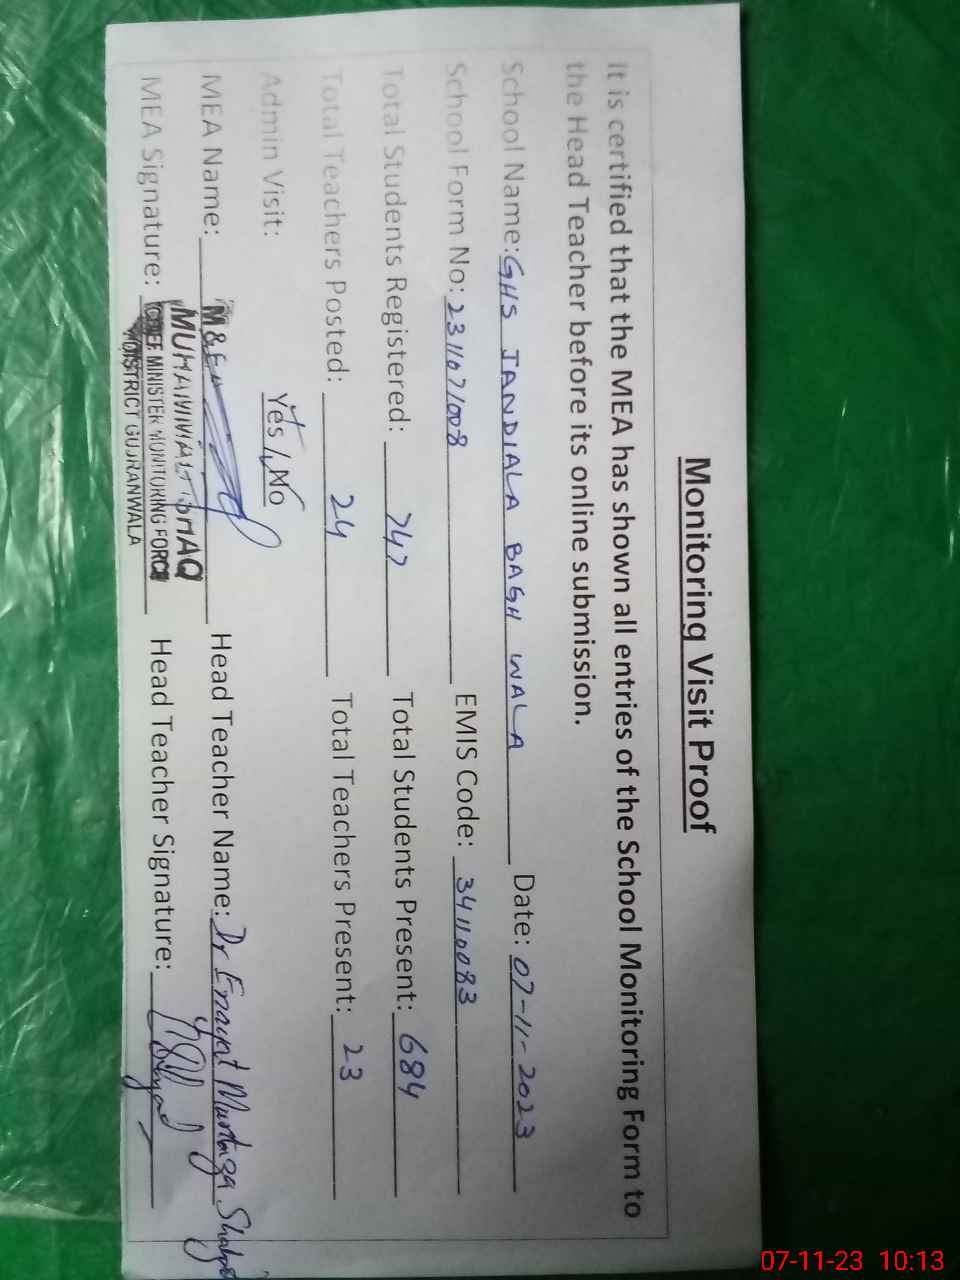 Monitoring Visit Proof
It is certified that the MEA has shown all entries of the School Monitoring Form to
the Head Teacher before its online submission.
School Name: GHS JANDIALA BAGH WALA Date: 07-11-2023
School Form No: 2311071008 EMIS Code: 34110083
Total Students Registered: 747 Total Students Present: 684
Total Teachers Posted: 24 Total Teachers Present: 23
Admin Visit: Yes / No
MEA Name: Head Teacher Name: Dr Murtaza
M&E
MUHAMMAD ISHAQ
MEA Signature: Head Teacher Signature:
CHIEF MINISTER MONITORING FORCE
DISTRICT GUJRANWALA
07-11-23 10:13